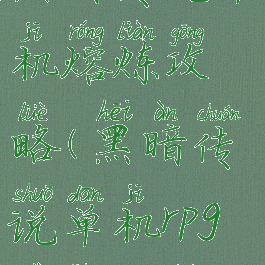 jī róng liàn gōng
机熔炼攻
lüè hēi àn chuán
略(黑暗传
shuō dān jī
说单机rpg